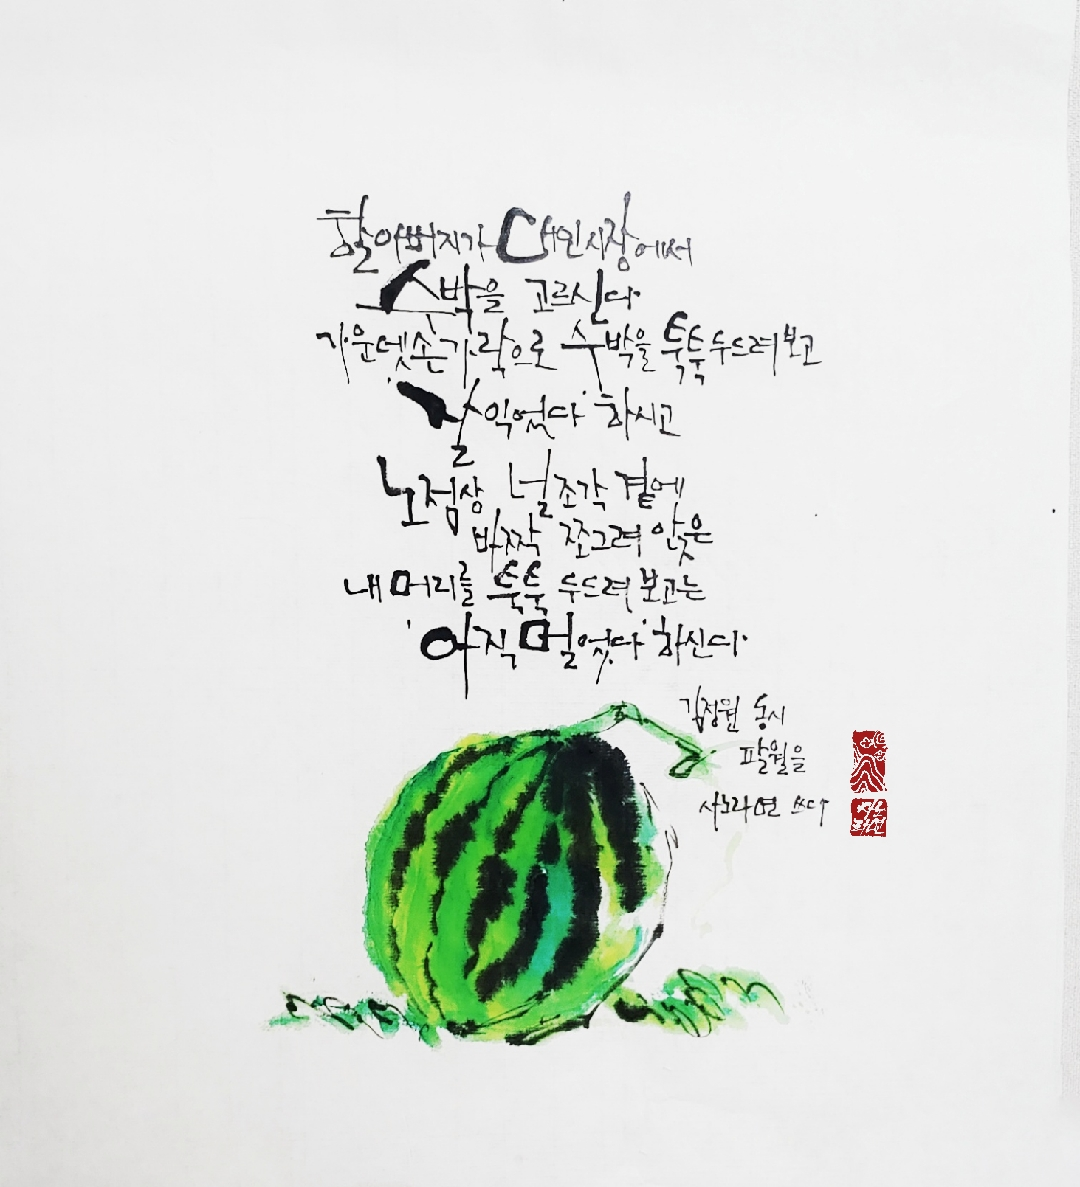 할아버지가 대인시장에서
수박을 고르신다
가운뎃손가락으로 수박을 툭툭 두드려 보고
잘 익었다' 하시고
노점상 널조각 곁에
바짝 쪼그려 앉은
내 머리를 툭툭 두드려 보고는
'아직 멀었다' 하신다
김정원 동시
팔월을
사노라면 쓰다